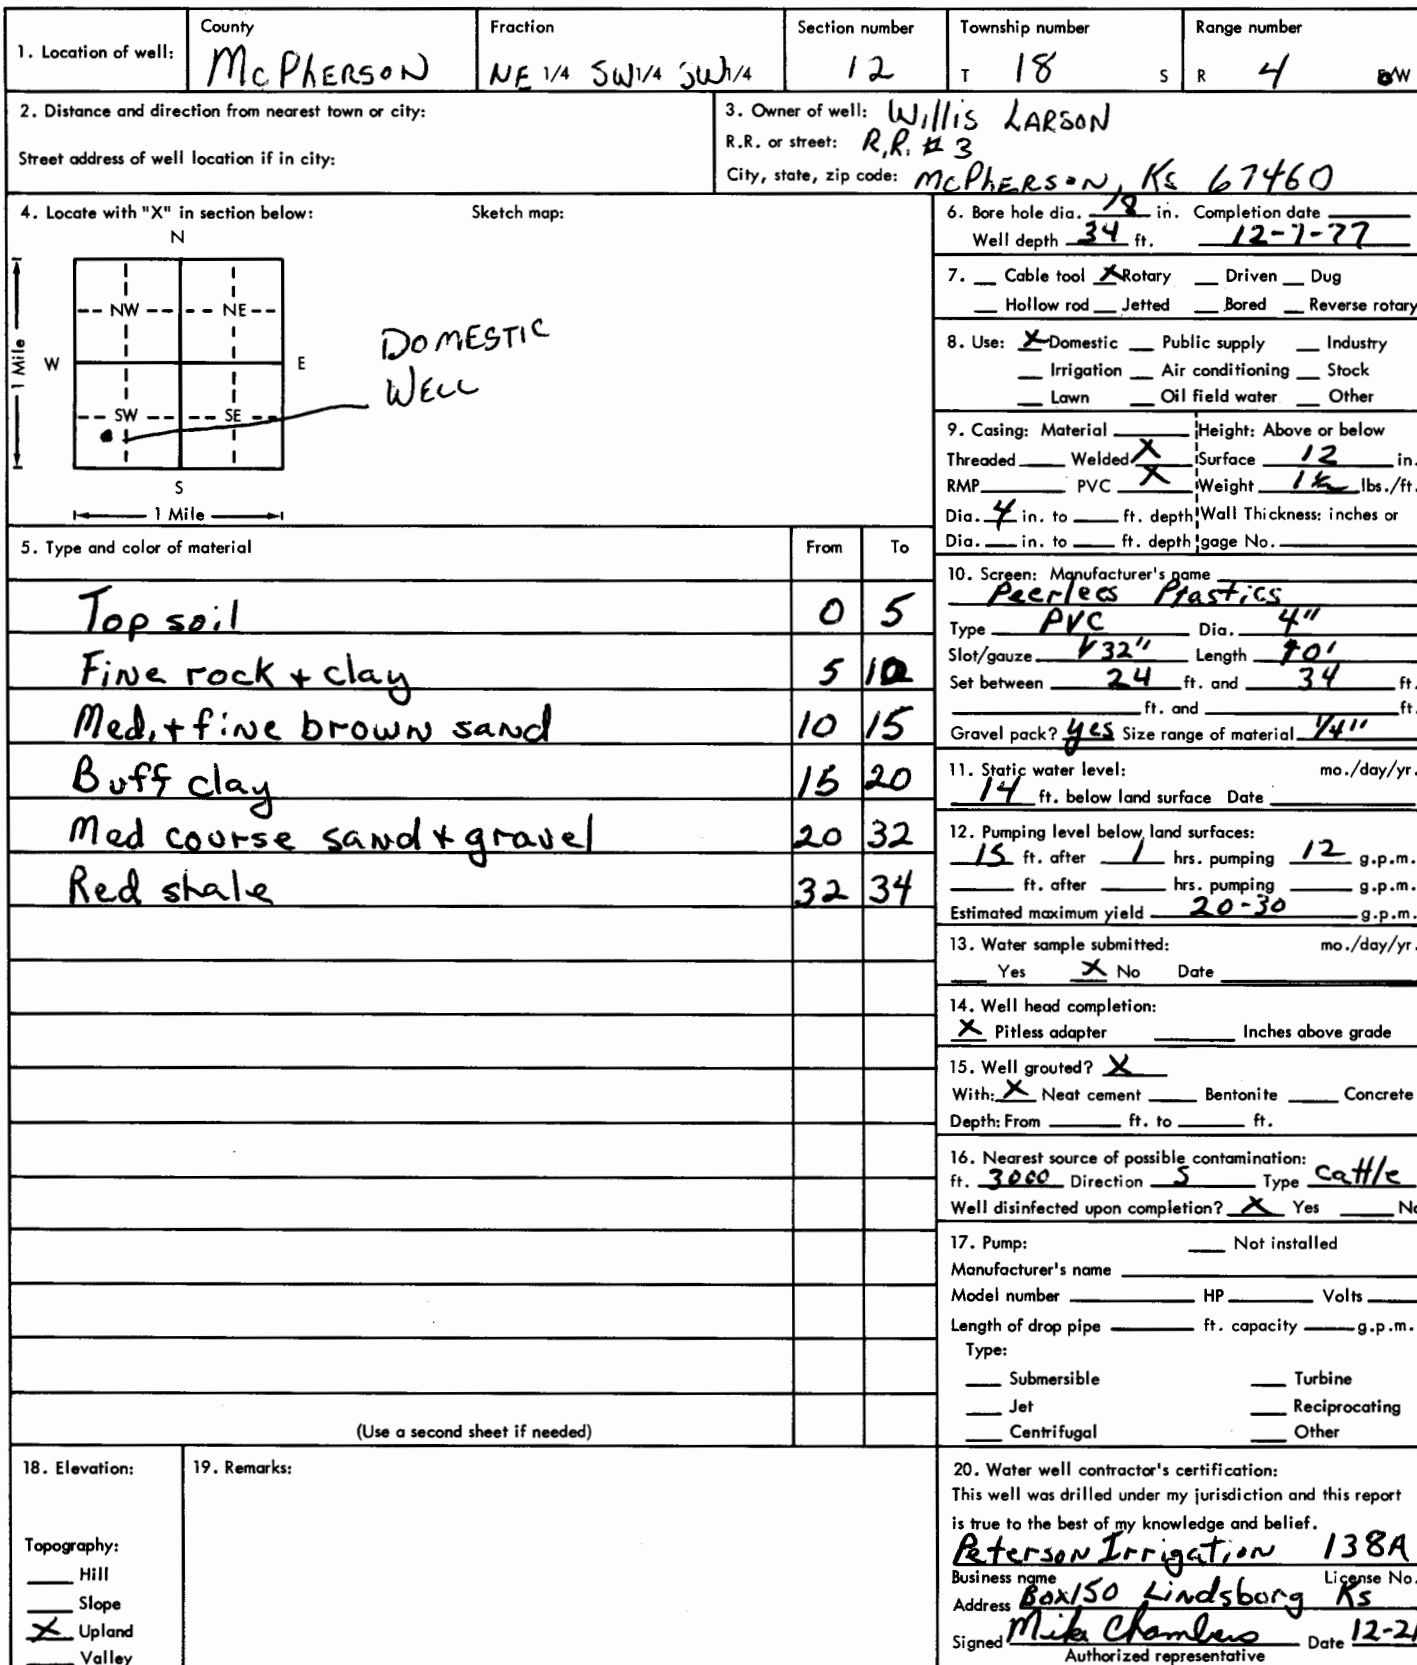 County Fraction Section number Township number Range number
1. Location of well: McPHERSON NE 1/4 SW 1/4 SW 1/4 12 T 18 S R 4 E/W
2. Distance and direction from nearest town or city:
Street address of well location if in city:
3. Owner of well: Willis LARSON
R.R. or street: R.R. # 3
City, state, zip code: McPHERSON, Ks 67460
4. Locate with "X" in section below: Sketch map:
N
NW NE
1 Mile W E
DOMESTIC
WELL
SW SE
S
1 Mile
5. Type and color of material From To
Top soil 0 5
Fine rock + clay 5 10
Med. + fine brown sand 10 15
Buff clay 15 20
Med course sand + gravel 20 32
Red shale 32 34
(Use a second sheet if needed)
6. Bore hole dia. 78 in. Completion date
Well depth 34 ft. 12-7-77
7. Cable tool X Rotary Driven Dug
Hollow rod Jetted Bored Reverse rotary
8. Use: X Domestic Public supply Industry
Irrigation Air conditioning Stock
Lawn Oil field water Other
9. Casing: Material Height: Above or below
Threaded Welded X Surface 12 in.
RMP PVC X Weight lbs./ft.
Dia. 4 in. to ft. depth Wall Thickness: inches or
Dia. in. to ft. depth gage No.
10. Screen: Manufacturer's name
Peerless Plastics
Type PVC Dia. 4"
Slot/gauze 1/32" Length 10'
Set between 24 ft. and 34 ft.
ft. and ft.
Gravel pack? yes Size range of material 1/4"
11. Static water level: mo./day/yr.
14 ft. below land surface Date
12. Pumping level below land surfaces:
15 ft. after 1 hrs. pumping 12 g.p.m.
ft. after hrs. pumping g.p.m.
Estimated maximum yield 20-30 g.p.m.
13. Water sample submitted: mo./day/yr.
Yes X No Date
14. Well head completion:
X Pitless adapter Inches above grade
15. Well grouted? X
With: X Neat cement Bentonite Concrete
Depth: From ft. to ft.
16. Nearest source of possible contamination:
ft. 3000 Direction S Type cattle
Well disinfected upon completion? X Yes No
17. Pump: Not installed
Manufacturer's name
Model number HP Volts
Length of drop pipe ft. capacity g.p.m.
Type:
Submersible Turbine
Jet Reciprocating
Centrifugal Other
18. Elevation:
Topography:
Hill
Slope
X Upland
Valley
19. Remarks:
20. Water well contractor's certification:
This well was drilled under my jurisdiction and this report
is true to the best of my knowledge and belief.
Peterson Irrigation 138A
Business name License No.
Address Box 150 Lindsborg Ks
Signed Mike Chambers Date 12-21
Authorized representative